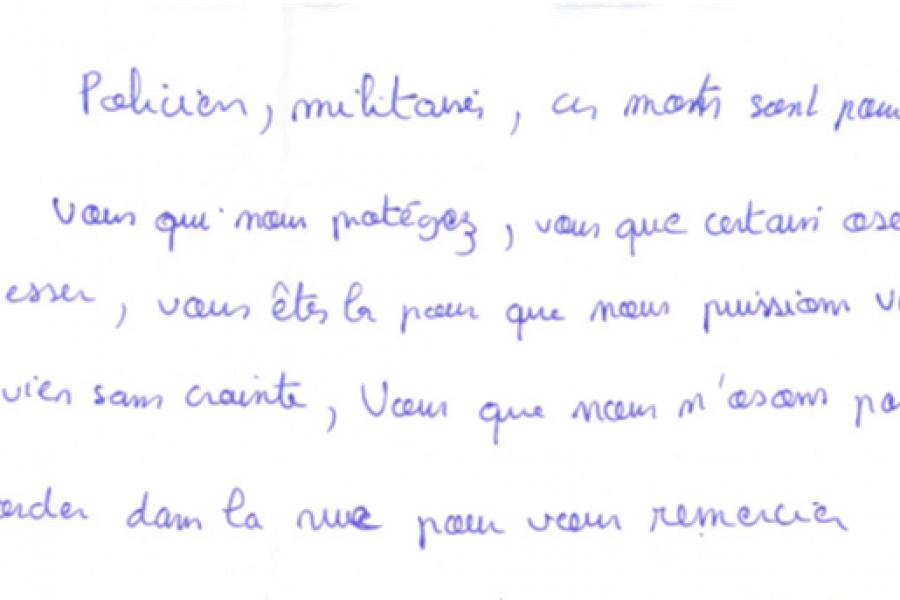 Policier, militaires, ces mots sont pour
Vous qui nous protégez, vous que certains ose
esser, vous êtes là pour que nous puissions vi
vies sans crainte, Vous que nous n'osons pa
order dans la rue pour vous remercier